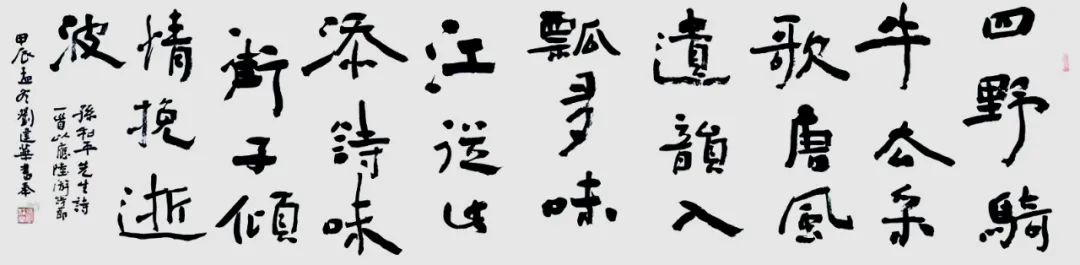 四野騎
牛去采
歌唐風
遺韻入
瓢多味
江從此
添詩味
街子傾
情挽逝
波
孫和平先生詩
一首以應陸游詩節
甲辰孟冬劉建華書奉